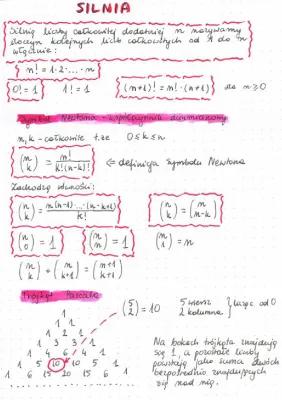 SILNIA
Silnią liczby całkowitej dodatniej n nazywamy
iloczyn kolejnych liczb całkowitych od 1 do n
włącznie:
n! = 1·2·...·n
0! = 1 1! = 1 (n+1)! = n!·(n+1) do n≥0
Symbol Newtona - współczynnik dwumianowy
n, k - całkowite t.że 0≤k≤n
(n k) = n!/k!(n-k)! ⇐ definicja symbolu Newtona
Zachodzą równości:
(n k) = n(n-1)...(n-k+1)/k! (n k) = (n n-k)
(n 0) = 1 (n n) = 1 (n 1) = n
(n k) + (n k+1) = (n+1 k+1)
Trójkąt Pascala
(5 2) = 10 5 wiersz 2 kolumna } licząc od 0
1
1 1
1 2 1
1 3 3 1
1 4 6 4 1
1 5 10 10 5 1
1 6 15 20 15 6 1
Na bokach trójkąta znajdują
się 1, a pozostałe liczby
powstają jako suma dwóch
bezpośrednio znajdujących
się nad nią.